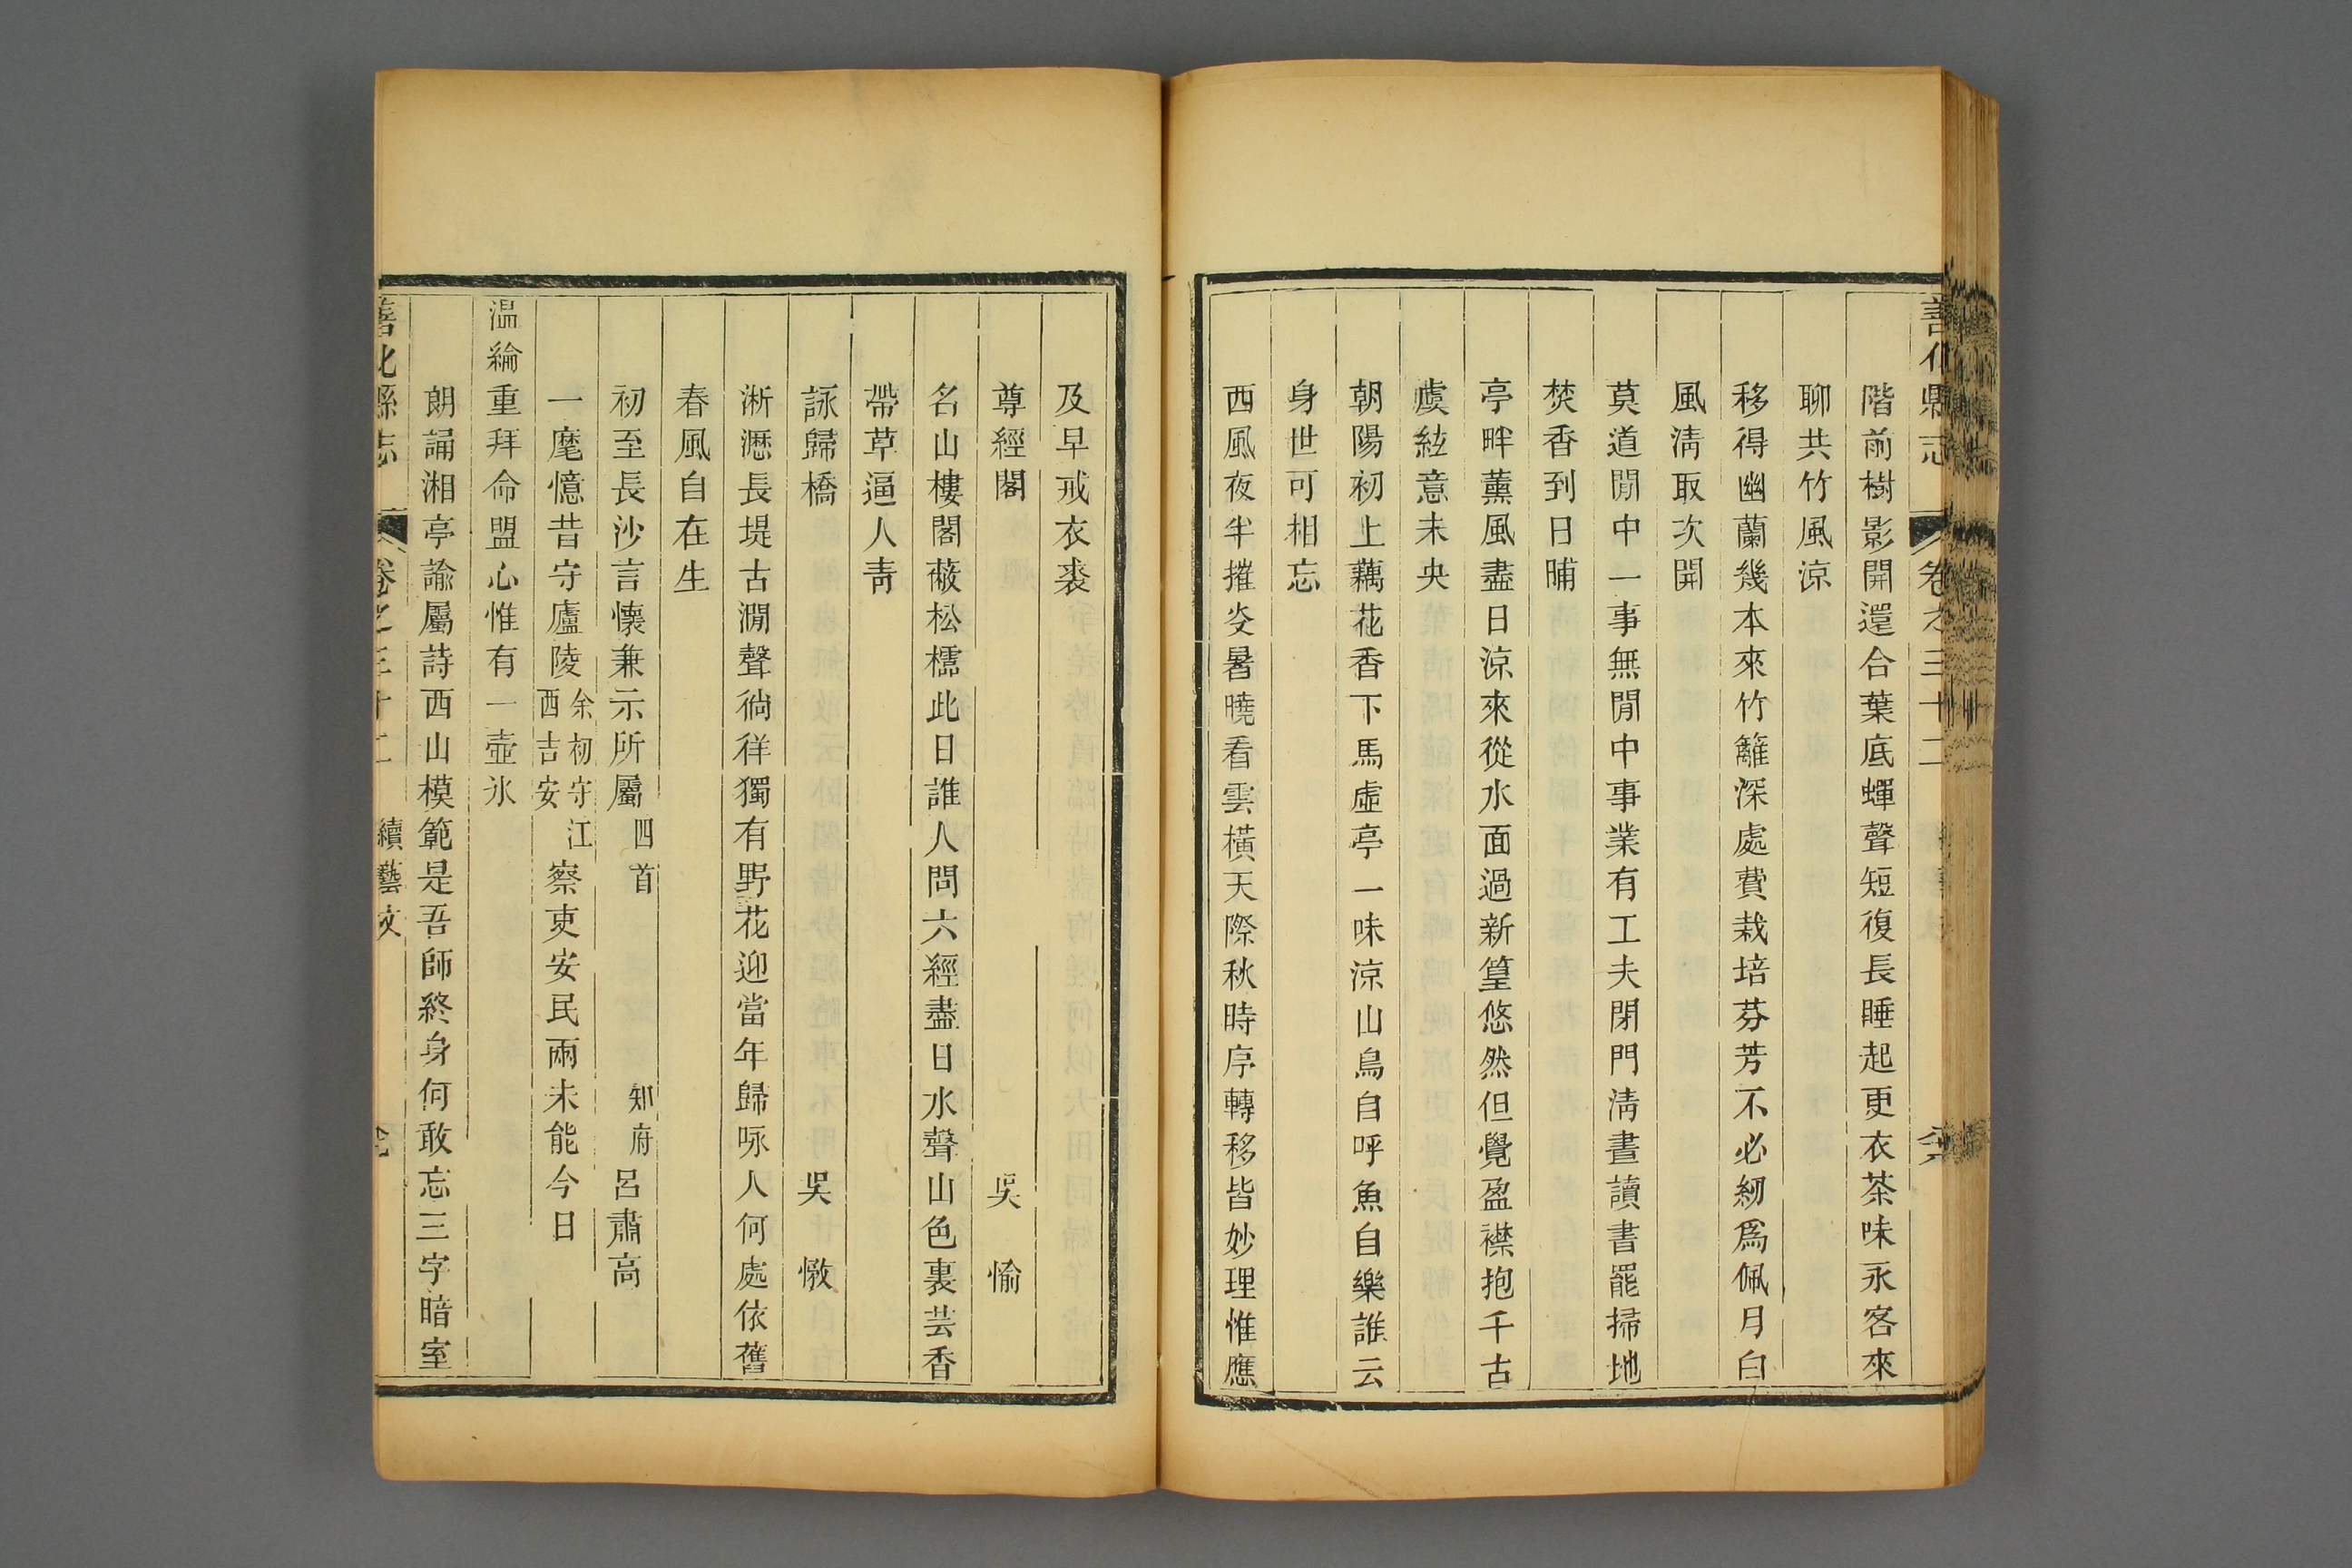 善化縣志 卷之三十二
階前樹影開還合葉底蟬聲短復長睡起更衣茶味永客來
聊共竹風涼
移得幽蘭幾本來竹籬深處費栽培芬芳不必紉爲佩月白
風淸取次開
莫道閒中一事無閒中事業有工夫閉門淸晝讀書罷掃地
焚香到日晡
亭畔薰風盡日涼來從水面過新篁悠然但覺盈襟抱千古
虞絃意未央
朝陽初上藕花香下馬虛亭一味涼山鳥自呼魚自樂誰云
身世可相忘
西風夜半摧炎暑曉看雲橫天際秋時序轉移皆妙理惟應
及早戒衣裘
尊經閣 吳愉
名山樓閣蔽松檽此日誰人問六經盡日水聲山色裏芸香
帶草逼人靑
詠歸橋 吳憿
淅瀝長堤古澗聲徜徉獨有野花迎當年歸咏人何處依舊
春風自在生
初至長沙言懷兼示所屬 四首 知府 呂肅高
一麾憶昔守廬陵 余初守江西吉安 察吏安民兩未能今日
溫綸重拜命盟心惟有一壺氷
朗誦湘亭諭屬詩西山模範是吾師終身何敢忘三字暗室
善化縣志 卷之三十二 續藝文